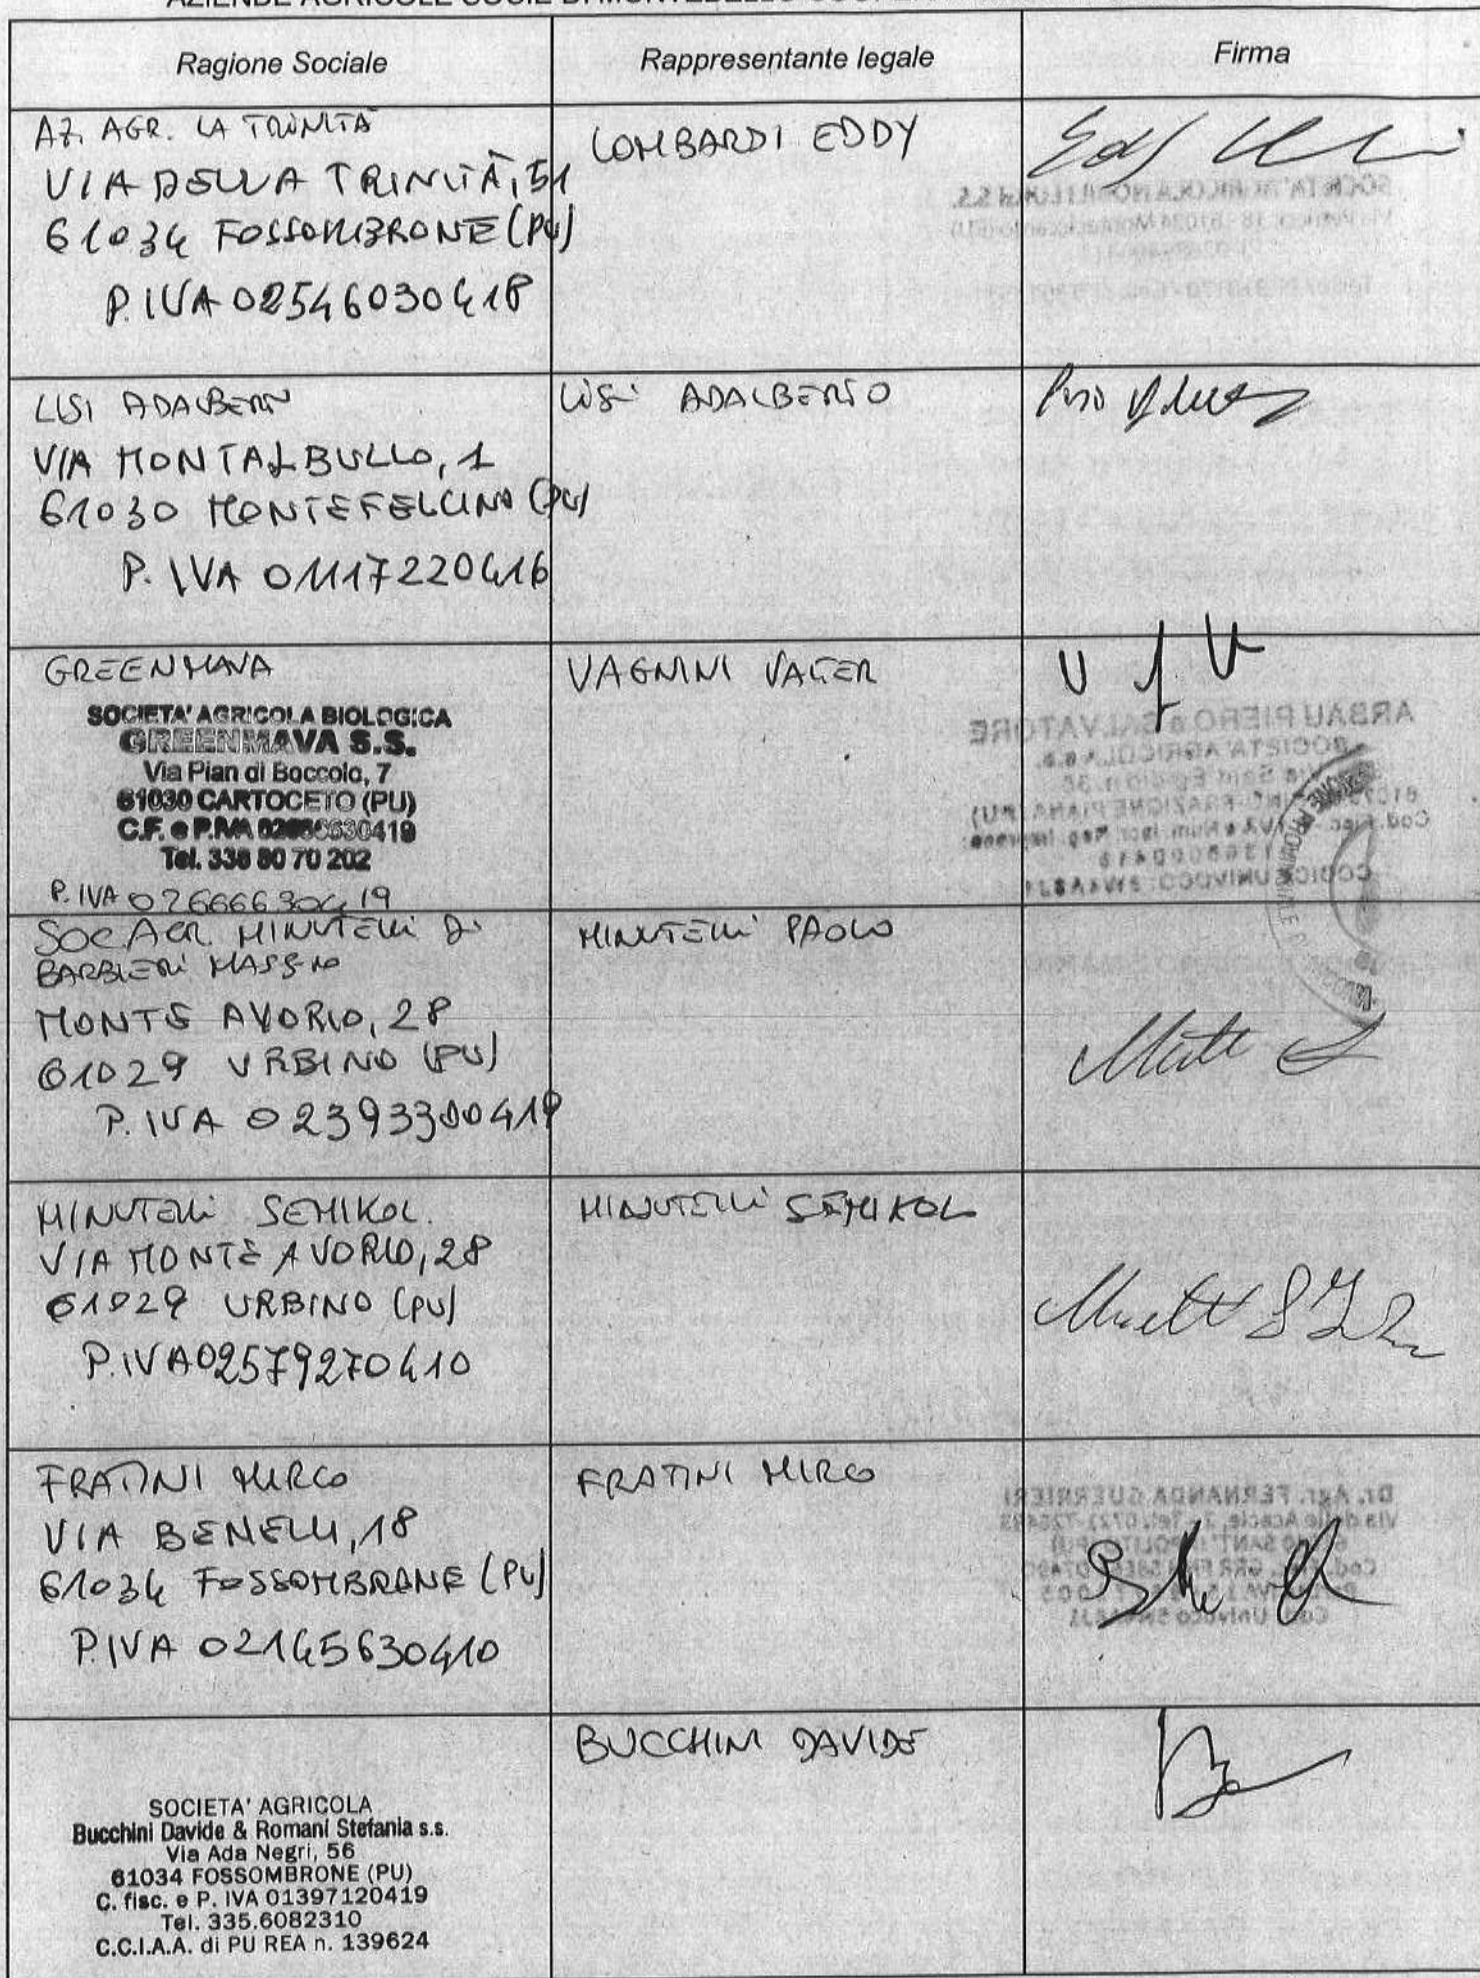 Ragione Sociale
Rappresentante legale
Firma
AZ. AGR. LA TRINITÀ
VIA DELLA TRINITÀ, 51
61034 FOSSOMBRONE (PU)
P. IVA 02546030418
LOMBARDI EDDY
LISI ADALBERTO
VIA MONTALBULLO, 1
61030 MONTEFELCINO (PU)
P. IVA 01117220416
LISI ADALBERTO
GREENMAVA
SOCIETA' AGRICOLA BIOLOGICA
GREENMAVA S.S.
Via Pian di Boccolo, 7
61030 CARTOCETO (PU)
C.F. e P.IVA 02666630419
Tel. 338 80 70 202
P. IVA 02666630419
VAGNINI VALTER
SOC. AGR. MINUTELLI DI
BARBIERI MASSIMO
MONTE AVORIO, 28
61029 URBINO (PU)
P. IVA 02393300419
MINUTELLI PAOLO
MINUTELLI SEMIKOL
VIA MONTE AVORIO, 28
61029 URBINO (PU)
P. IVA 02579270410
MINUTELLI SEMIKOL
FRATINI MIRCO
VIA BENELLI, 18
61034 FOSSOMBRONE (PU)
P. IVA 02145630410
FRATINI MIRCO
SOCIETA' AGRICOLA
Bucchini Davide & Romani Stefania s.s.
Via Ada Negri, 56
61034 FOSSOMBRONE (PU)
C. fisc. e P. IVA 01397120419
Tel. 335.6082310
C.C.I.A.A. di PU REA n. 139624
BUCCHINI DAVIDE